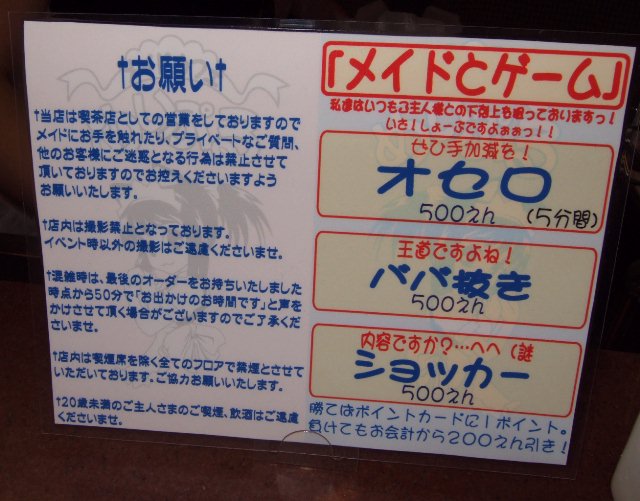 †お願い†
†当店は喫茶店としての営業をしておりますので
メイドにお手を触れたり、プライベートなご質問、
他のお客様にご迷惑となる行為は禁止させて
頂いておりますのでお控えくださいますよう
お願いいたします。
†店内は撮影禁止となっております。
イベント時以外の撮影はご遠慮くださいませ。
†混雑時は、最後のオーダーをお持ちいたしました
時点から50分で「お出かけのお時間です」と声を
かけさせて頂く場合がございますのでご了承くだ
さいませ。
†店内は喫煙席を除く全てのフロアで禁煙とさせて
いただいております。ご協力お願いいたします。
†20歳未満のご主人さまのご喫煙、飲酒はご遠慮
くださいませ。
「メイドとゲーム」
私達はいつもご主人様との下剋上も狙っておりますっ!
いざ!しょーぶですよぉぉっ!!
ぜひ手加減を!
オセロ
500えん (5分間)
王道ですよね!
ババ抜き
500えん
内容ですか?…へへ(謎
ショッカー
500えん
勝てばポイントカードに1ポイント。
負けてもお会計から200えん引き!